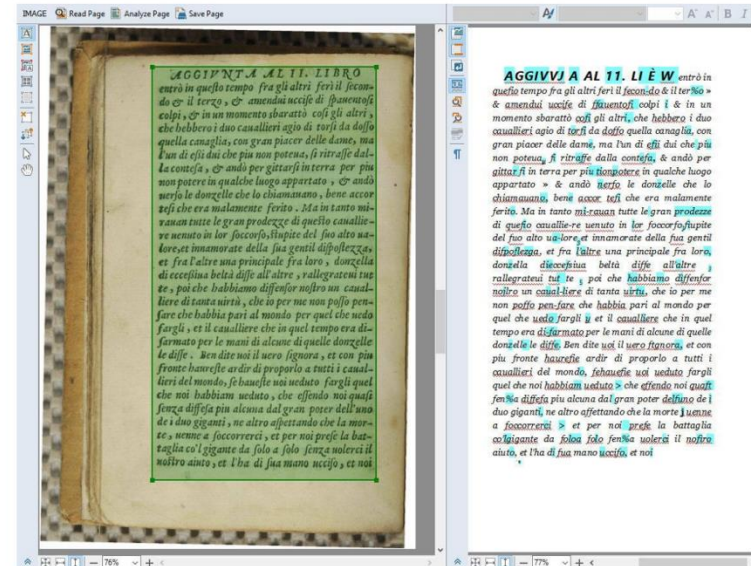 IMAGE Read Page Analyze Page Save Page
AGGIVNTA AL II. LIBRO
entrò in queſto tempo fra gli altri ferì il ſecon-
do & il terzo, & amendui ucciſe di ſpauentoſi
colpi, & in un momento sbarattò coſi gli altri,
che hebbero i duo cauallieri agio di torſi da doſſo
quella canaglia, con gran piacer delle dame, ma
l'un di eſsi dui che piu non poteua, ſi ritraſſe dal-
la conteſa, & andò per gittarſi in terra per piu
non potere in qualche luogo appartato, & andò
uerſo le donzelle che lo chiamauano, bene accor
teſi che era malamente ferito. Ma in tanto mi-
rauan tutte le gran prodezze di queſto cauallie-
re uenuto in lor ſoccorſo, ſtupite del ſuo alto ua-
lore, et innamorate della ſua gentil diſpoſtezza,
et fra l'altre una principale fra loro, donzella
di ecceſsiua beltà diſſe all'altre, rallegrateui tut
te, poi che habbiamo diffenſor noſtro un caual-
liere di tanta uirtù, che io per me non poſſo pen-
ſare che habbia pari al mondo per quel che uedo
fargli, et il caualliere che in quel tempo era di-
ſarmato per le mani di alcune di quelle donzelle
le diſſe. Ben dite uoi il uero ſignora, et con piu
fronte haureſte ardir di proporlo a tutti i caual-
lieri del mondo, ſe haueſte uoi ueduto fargli quel
che noi habbiam ueduto, che eſſendo noi quaſi
ſenza diffeſa piu alcuna dal gran poter dell'uno
de i duo giganti, ne altro aſpettando che la mor-
te, uenne a ſoccorrerci, et per noi preſe la bat-
taglia co'l gigante da ſolo a ſolo ſenza uolerci il
noſtro aiuto, et l'ha di ſua mano ucciſo, et noi
76%
AGGIVVJ A AL 11. LI È W entrò in
quefio tempo fra gli altri ferì il fecon-do & il ter%o »
& amendui uocife di ffauentofi colpi i & in un
momento sbarattò cofi gli altri, che hebbero i duo
cauallieri agio di torfi da doffo quella canaglia, con
gran piacer delle dame, ma l'un di efii dui che piu
non poteua, fi ritraffe dalla contefa, & andò per
gittar fi in terra per piu tionpotere in qualche luogo
appartato » & andò nerfo le donzelle che lo
chiamauano, bene accor tefi che era malamente
ferito. Ma in tanto mi-rauan tutte le gran prodezze
di quefio cauallie-re uenuto in lor foccorfo,ftupite
del fuo alto ua-lore,et innamorate della fua gentil
difpoflezga, et fra l'altre una principale fra loro,
donzella dieccefsiua beltà diffe all'altre ,
rallegrateui tut te , poi che habbiamo diffenfor
nojlro un caual-liere di tanta uirtu, che io per me
non poffo pen-fare che habbia pari al mondo per
quel che uedo fargli u et il caualliere che in quel
tempo era di-farmato per le mani di alcune di quelle
donzelle le diffe. Ben dite uoi il uero ftgnora, et con
piu fronte haurefie ardir di proporlo a tutti i
cauallieri del mondo, fehauefie uoi ueduto fargli
quel che noi habbiam ueduto > che effendo noi quaft
fen%a diffefa piu alcuna dal gran poter delfuno de i
duo giganti, ne altro affettando che la morte j uenne
a foccorrerci > et per noi prefe la battaglia
co'lgigante da foloa folo fen%a uolerci il nofiro
aiuto, et l'ha di fua mano uccifo, et noi
77%